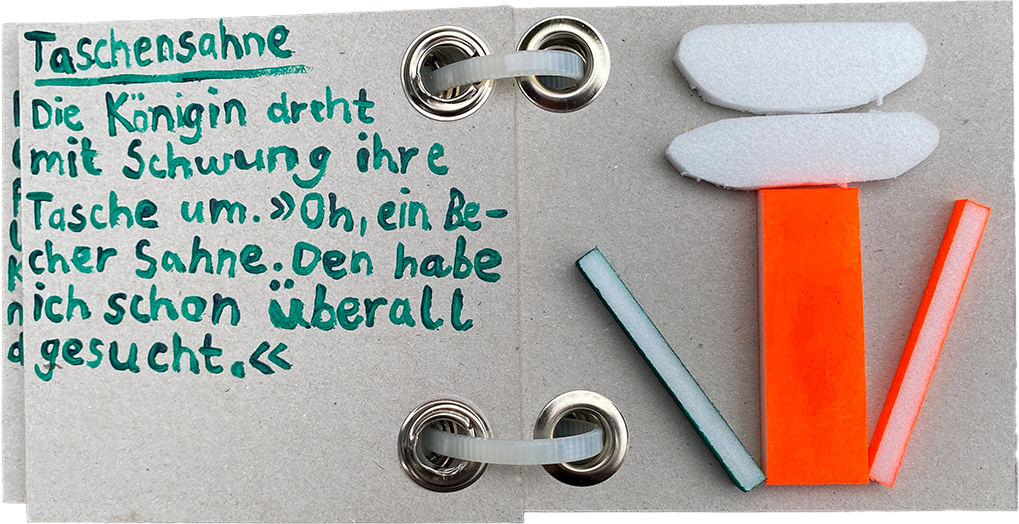 Taschensahne
Die Königin dreht
mit Schwung ihre
Tasche um. »Oh, ein Be-
cher Sahne. Den habe
ich schon überall
gesucht.«